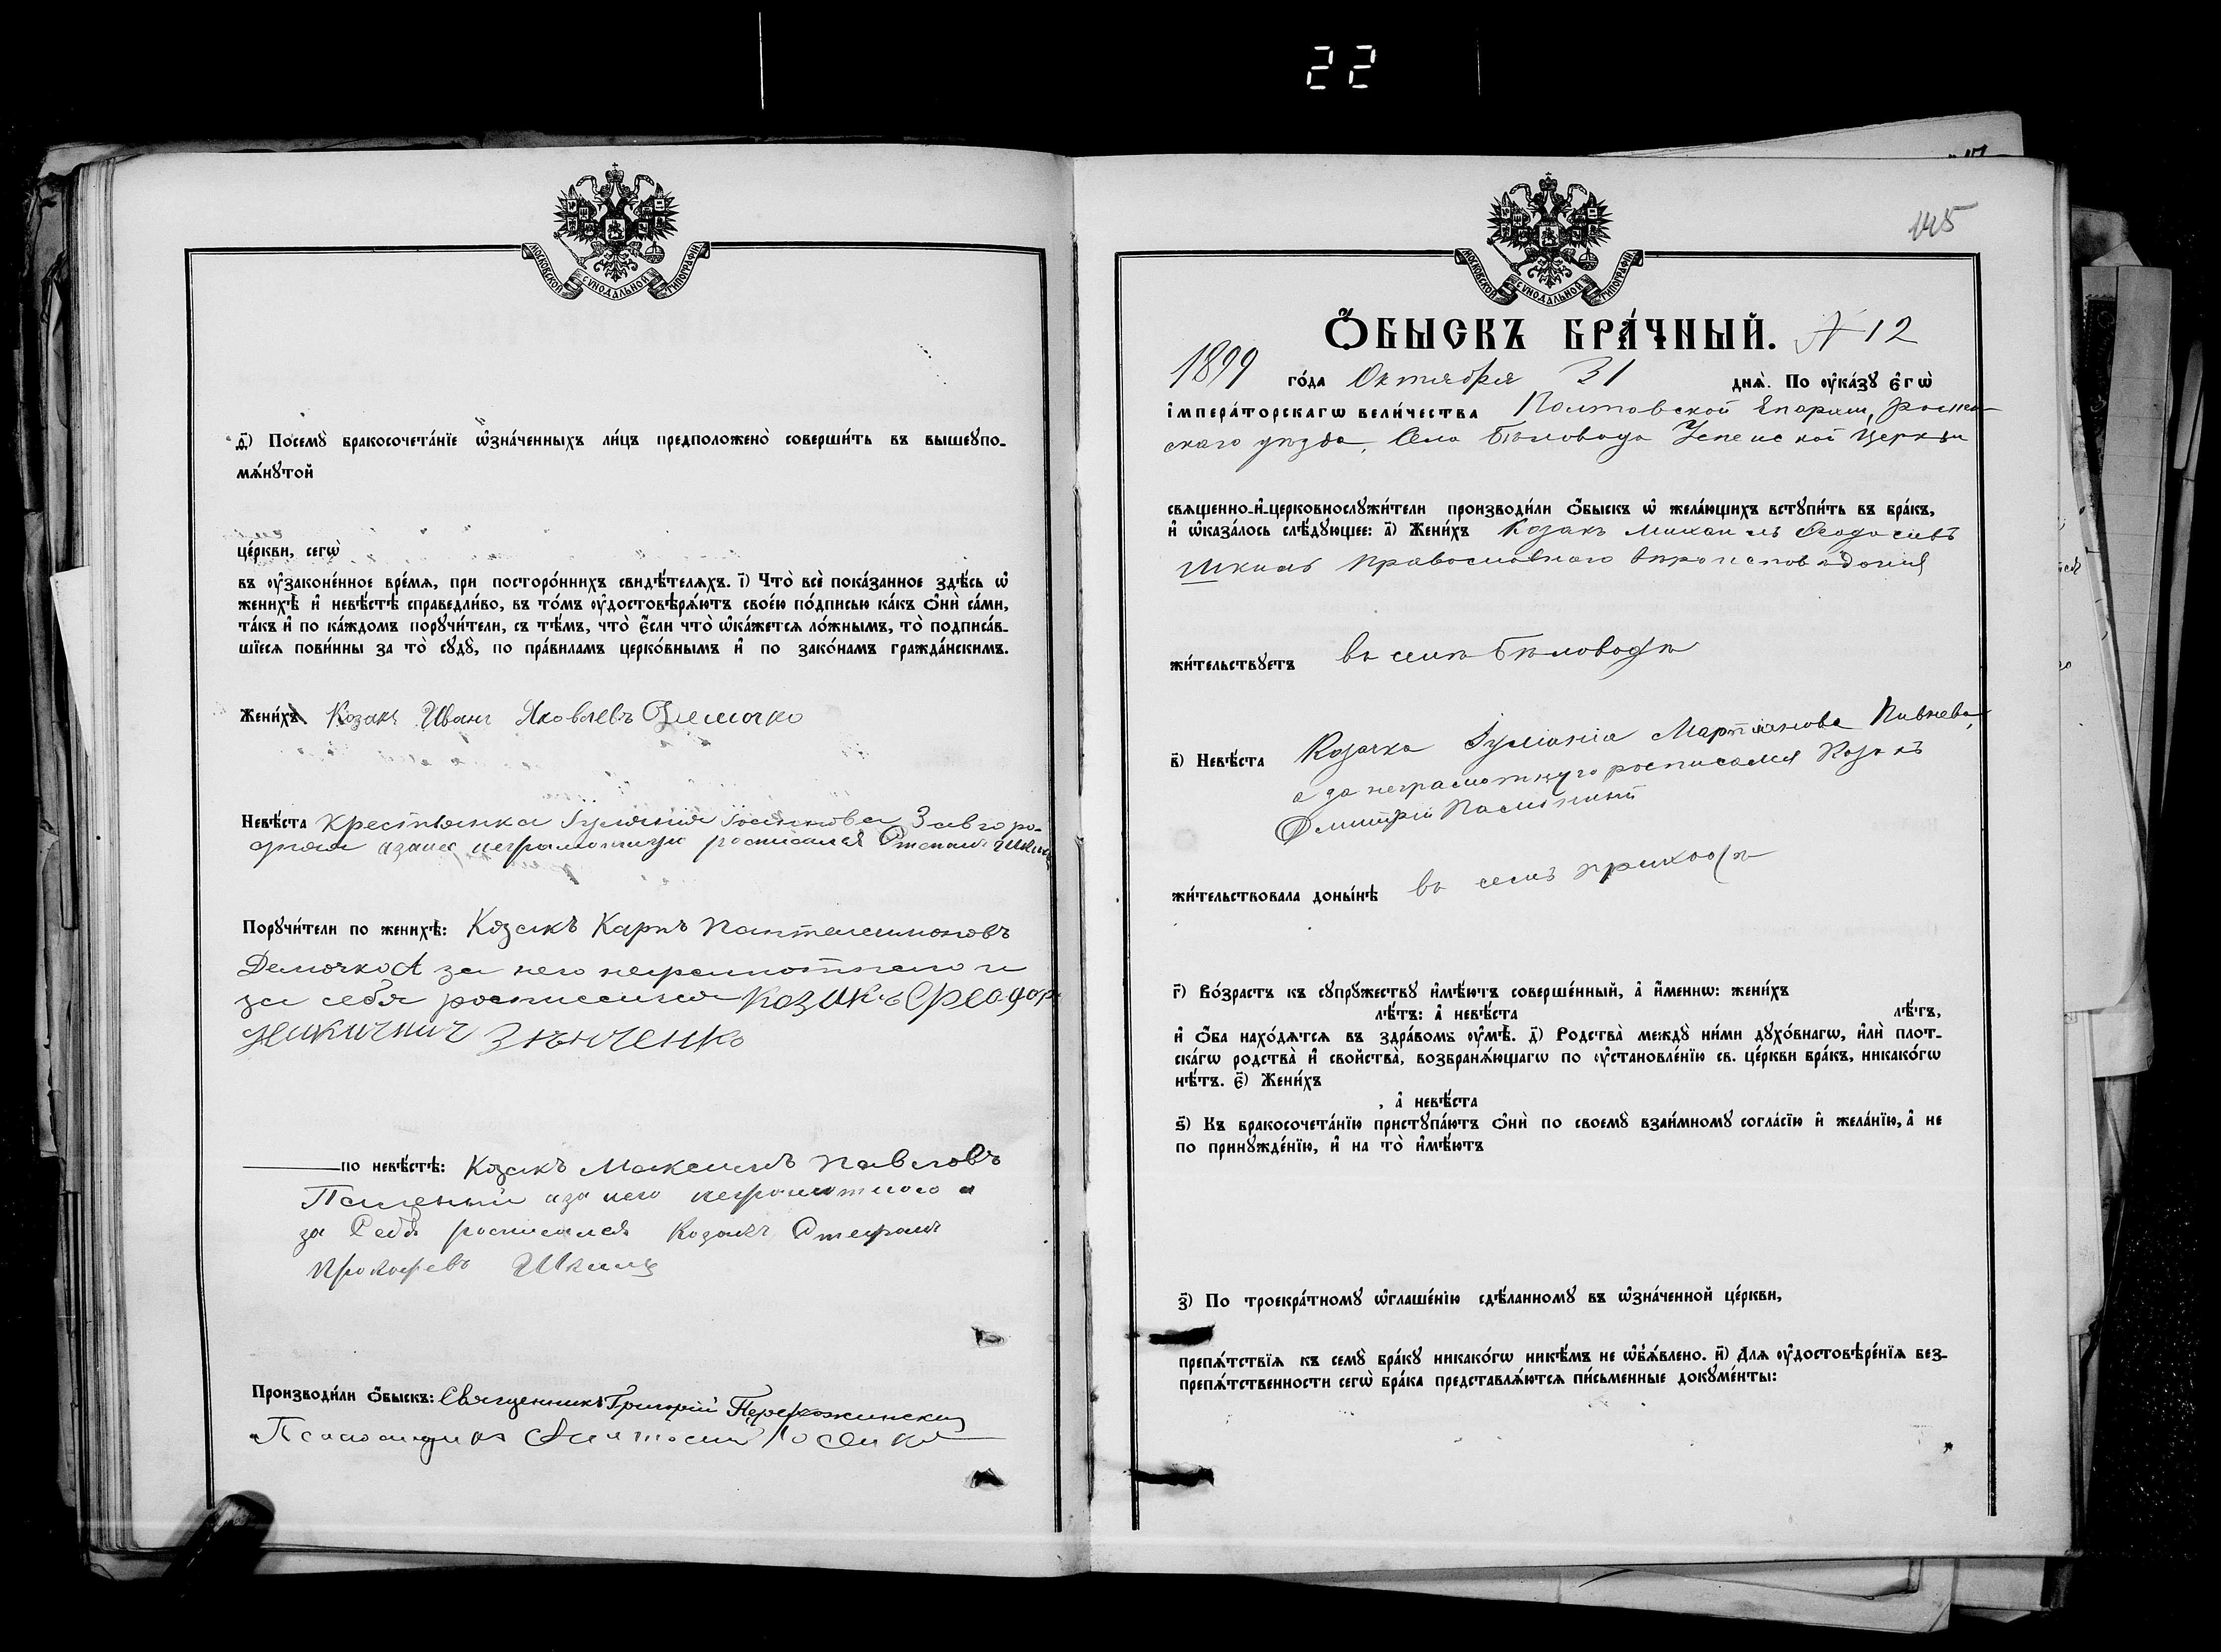 22
МОСКОВСКОЙ СѴНОДАЛЬНОЙ ТИПОГРАФІИ
ѳ҃) Посемꙋ̀ бракосочета́нїе ѡ҆зна́ченныхъ ли́цъ предположено̀ соверши́ть въ вышеꙋпо-
мѧ́нꙋтой
це́ркви, сегѡ̀
въ ᲂу҆зако́нённое вре́мѧ, при посторо́ннихъ свидѣ́телѧхъ. і҃) Что̀ всѐ пока́занное здѣ́сь ѡ҆
женихѣ̀ и҆ невѣ́стѣ справедли́во, въ то́мъ ᲂу҆достовѣрѧ́ютъ свое́ю по́дписью ка́къ ѻ҆нѝ са́ми,
та́къ и҆ по ка́ждомъ порꙋчи́тели, съ тѣ́мъ, что̀ є҆́сли что̀ ѡ҆ка́жетсѧ ло́жнымъ, то̀ подписа́в-
шїесѧ пови́нны за то̀ сꙋдꙋ̀, по пра́виламъ церко́внымъ и҆ по зако́намъ гражда́нскимъ.
Жени́хъ Козакъ Иванъ Яковлевъ Демочко
Невѣ́ста Крестьянка Іуліянія Завгоро-
дняя а за нее неграмотную росписался Степанъ Шкиль
Порꙋчи́тели по женихѣ̀: Козакъ Карпъ Пантелеимоновъ
Демочко А за него неграмотнаго и
за себя росписался козакъ Феодоръ
Никитичъ Зѣнченко
по невѣ́стѣ: Козакъ Максимъ Павловъ
а за него неграмотного и
за Себя росписался Козакъ Стефанъ
Прокофевъ Шкиль
Производи́ли ѻ҆́быскъ: Священникъ Григорій
Псаломщикъ
145
МОСКОВСКОЙ СѴНОДАЛЬНОЙ ТИПОГРАФІИ
Ѻ҆́БЫСКЪ БРА́ЧНЫЙ. № 12
1899 го́да Октября 31 днѧ̀. По ᲂу҆ка́зꙋ є҆гѡ̀
і҆мпера́торскагѡ вели́чества Полтавской Епархіи, Ромен-
скаго уѣзда, Села Бѣловода Успенской Церкви
свѧщенно-и҆-церковнослꙋжи́тели производи́ли ѻ҆́быскъ ѡ҆ жела́ющихъ встꙋпи́ть въ бра́къ,
и҆ ѡ҆каза́лось слѣ́дꙋющее: а҃) Жени́хъ Козакъ Михаилъ Феодосіевъ
Шкиль православнаго вѣроисповѣданія
жи́тельствꙋетъ въ селѣ Бѣловодѣ
в҃) Невѣ́ста Козачка Іуліанія Мартіянова Пивнева,
а за неграмотную росписался Козакъ
Дмитрій
жи́тельствовала доны́нѣ въ семъ приходѣ
г҃) Во́зрастъ къ сꙋпрꙋ́жествꙋ и҆мѣ́ютъ соверше́нный, а҆ и҆́меннѡ: жени́хъ
лѣ́тъ: а҆ невѣ́ста лѣ́тъ,
и҆ ѻ҆́ба нахо́дѧтсѧ въ здра́вомъ ᲂу҆мѣ̀. д҃) Родства̀ междꙋ̀ ни́ми дꙋхо́внагѡ, и҆лѝ плот-
ска́гѡ родства̀ и҆ свойства̀, возбранѧ́ющагѡ по ᲂу҆становле́нїю св. це́ркви бра́къ, никако́гѡ
нѣ́тъ. є҃) Жени́хъ
, а҆ невѣ́ста
ѕ҃) Къ бракосочета́нїю пристꙋпа́ютъ ѻ҆нѝ по своемꙋ̀ взаи́мномꙋ согла́сїю и҆ жела́нїю, а҆ не
по принꙋжде́нїю, и҆ на то̀ и҆мѣ́ютъ
з҃) По троекра́тномꙋ ѡ҆глаше́нїю сдѣ́ланномꙋ въ ѡ҆зна́ченной це́ркви,
препѧ́тствїѧ къ семꙋ̀ бра́кꙋ никако́гѡ никѣ́мъ не ѡ҆б̾ѧ́влено. и҃) Длѧ ᲂу҆достовѣре́нїѧ без-
препѧ́тственности сегѡ̀ бра́ка представлѧ́ютсѧ пи́сьменные докꙋме́нты: